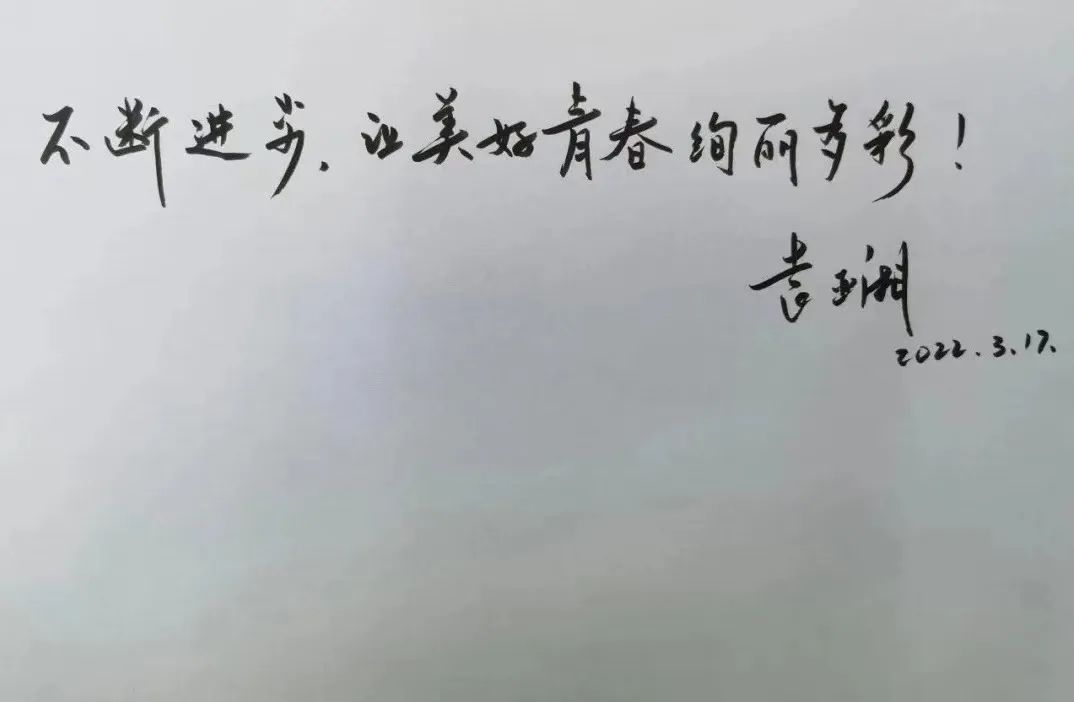 不断进步，让美好青春绚丽多彩！
袁亚湘
2022.3.17.